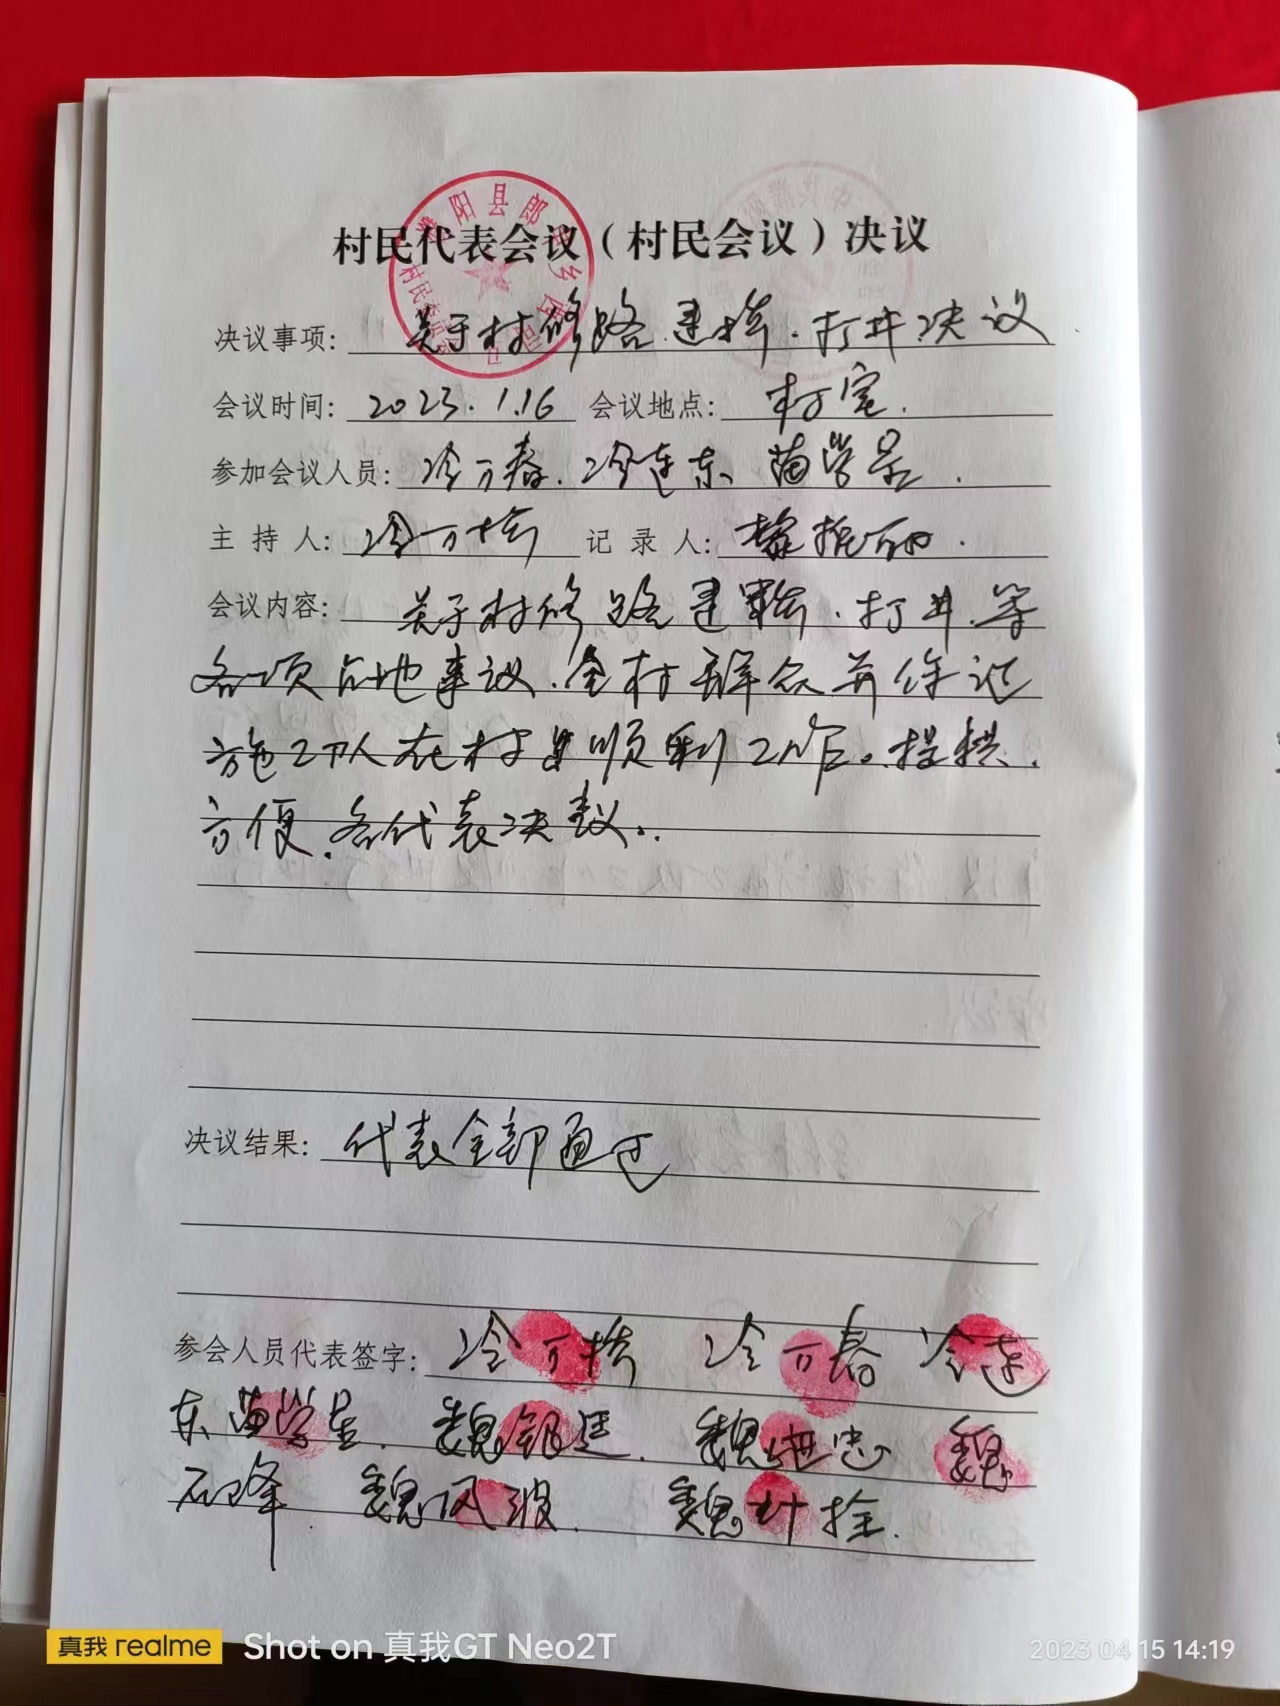 村民代表会议（村民会议）决议
濮阳县郎中乡
村民委员会
决议事项: 关于村修路.建桥.打井决议
会议时间: 2023.1.16 会议地点: 村室.
参加会议人员: 冷万春.冷连东 苗学
主持人: 冷万桥 记录人:
会议内容: 关于村修路建桥.打井.等
各项占地事议.全村群众并保证
施工队在村里顺利工作。提供.
方便.各代表决议..
决议结果: 代表全部通过
参会人员代表签字: 冷万桥 冷万春 冷连
东 苗学 . 魏银廷. 魏世忠 魏
石峰 魏风波. 魏计拴.
真我 realme Shot on 真我GT Neo2T
2023 04 15 14:19